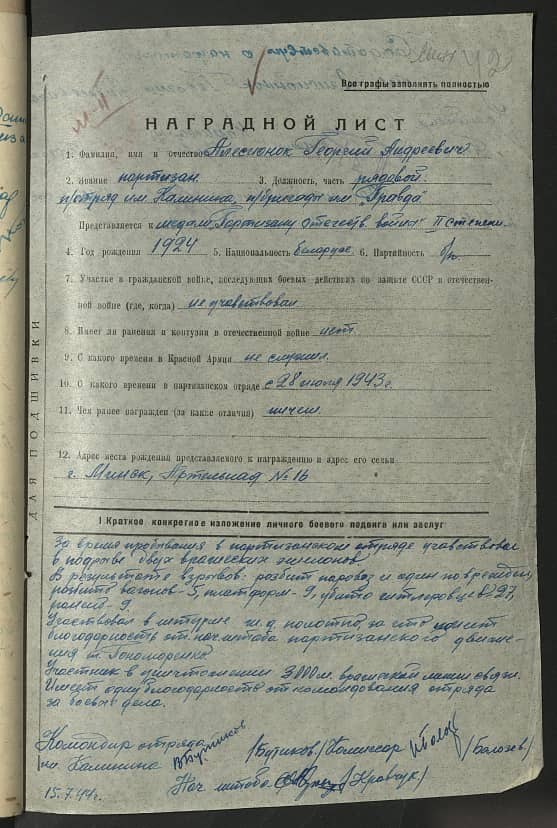 Все графы заполнять полностью
НАГРАДНОЙ ЛИСТ
1. Фамилия, имя и отчество Алесионок Георгий Андреевич
2. Звание партизан 3. Должность, часть рядовой
п/отряд им. Калинина, п/бригады им "Правда"
Представляется к медали "Партизану отечеств. войны" II степени
4. Год рождения 1924 5. Национальность белорус 6. Партийность б/п
7. Участие в гражданской войне, последующих боевых действиях по защите СССР и отечествен-
ной войне (где, когда) не учавствовал
8. Имеет ли ранения и контузии в отечественной войне нет.
9. С какого времени в Красной Армии не служил.
10. С какого времени в партизанском отряде с 28 июля 1943 г.
11. Чем ранее награжден (за какие отличия) ничем.
12. Адрес места рождения представляемого к награждению и адрес его семьи
г. Минск, № 16
ДЛЯ ПОДШИВКИ
I Краткое конкретное изложение личного боевого подвига или заслуг
За время пребывания в партизанском отряде учавствовал
в подрыве двух вражеских эшелонов
В результате взрывов: разбит паровоз и один поврежден,
разбито вагонов-5, платформ-9, убито гитлеровцев-27,
ранено-9.
Участвовал в штурме ж.д. полотна, за что имеет
благодарность от нач. штаба партизанского движе-
ния т. Пономаренко
Участник в уничтожении 3000 м. вражеской линии связи.
Имеет одну благодарность от командования отряда
за боевые дела.
Командир отряда
им. Калинина /Бутиков/ Комиссар /Болозев/
Нач. штаба /Кравчук/
15.7.44 г.